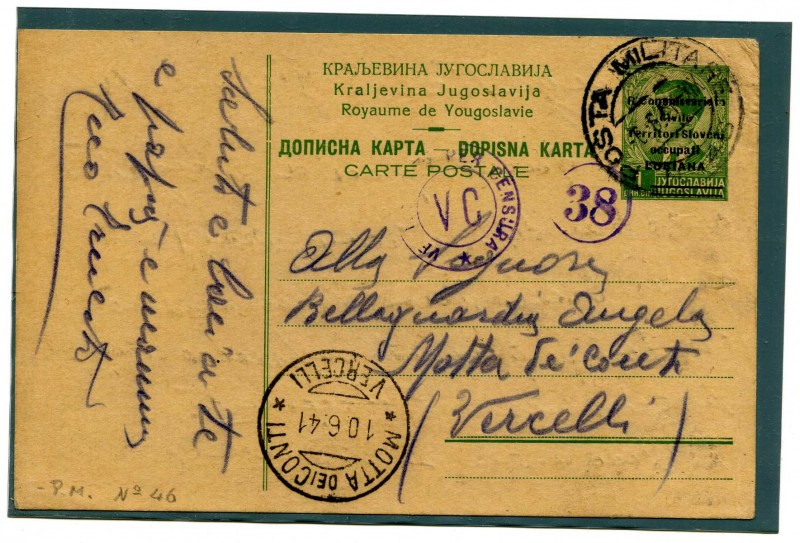 КРАЉЕВИНА ЈУГОСЛАВИЈА
Kraljevina Jugoslavija
Royaume de Yougoslavie
ДОПИСНА КАРТА — DOPISNA KARTA
CARTE POSTALE
POSTA MILITARE
R. Commissariato
Civile
Territori Sloveni
occupati
LUBIANA
ЈУГОСЛАВИЈА
JUGOSLAVIJA
PER CENSURA
VC
38
Alla Signora
Angela
Motta de' Conti
(Vercelli)
VERCELLI
10.6.41
MOTTA DEI CONTI
Saluti e baci a te
e papà e mamma
- P.M. Nº 46